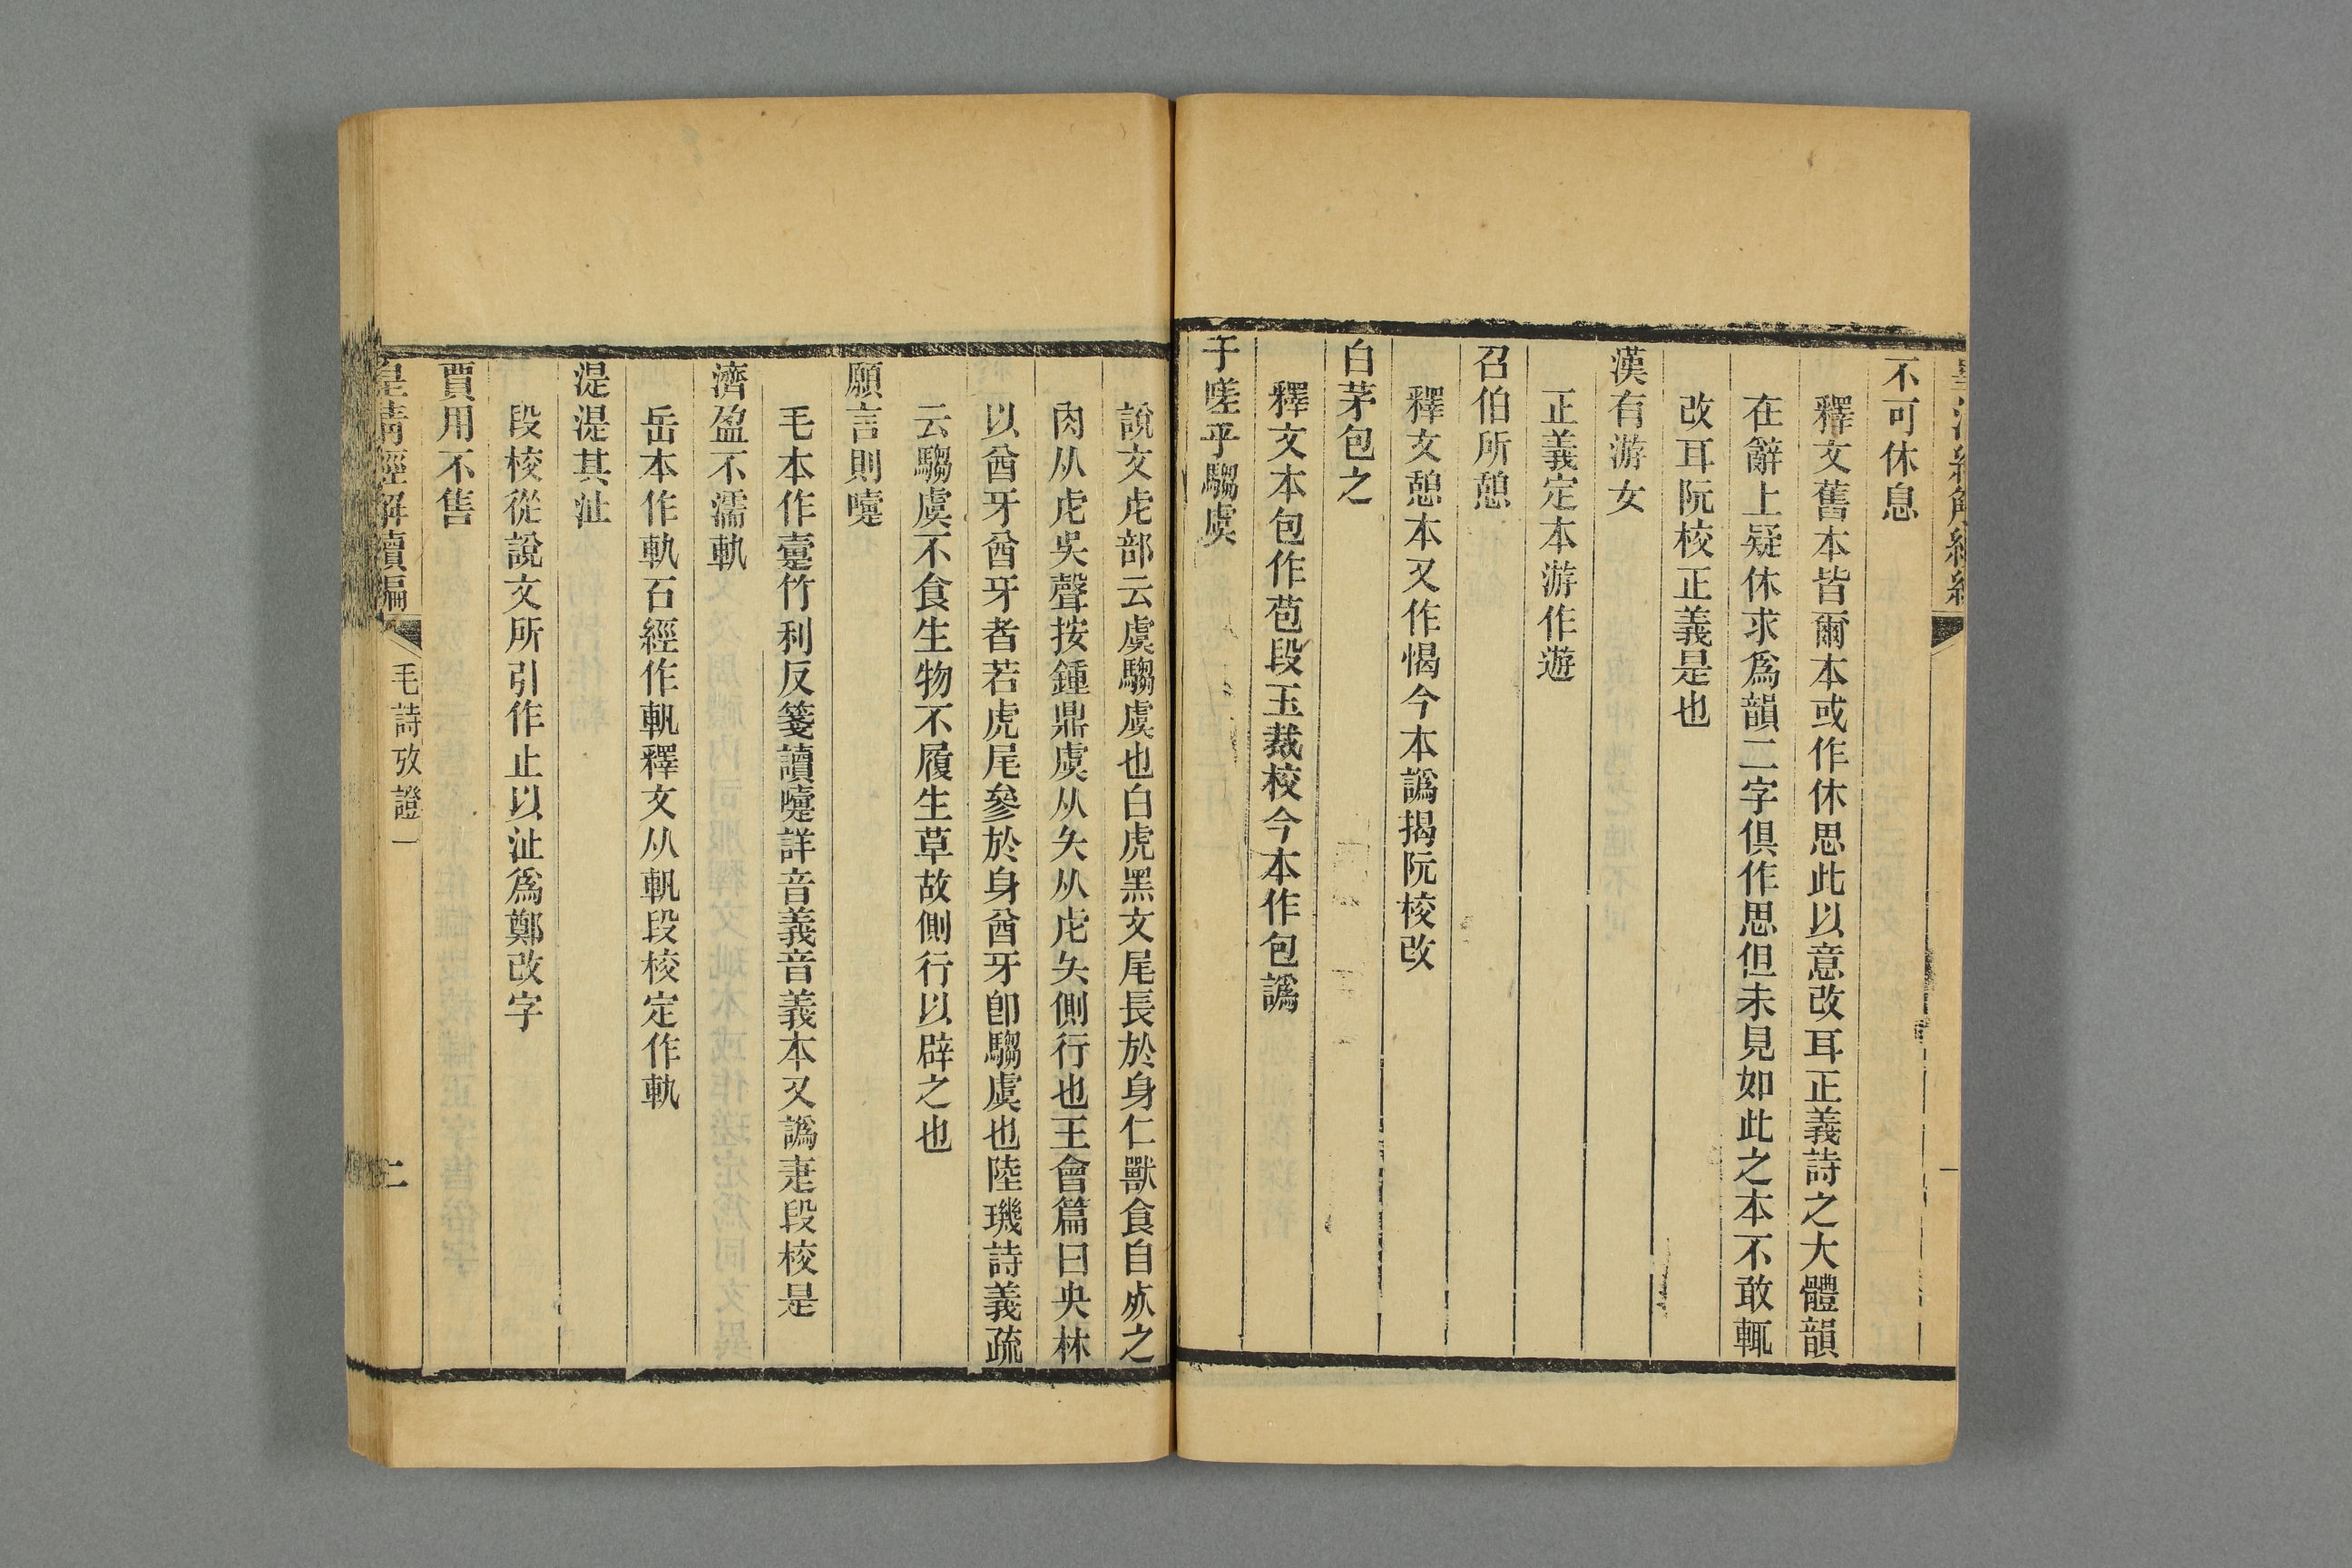 不可休息
釋文舊本皆爾本或作休思此以意改耳正義詩之大體韻
在辭上疑休求爲韻二字俱作思但未見如此之本不敢輒
改耳阮校正義是也
漢有游女
正義定本游作遊
召伯所憩
釋文憩本又作愒今本譌揭阮校改
白茅包之
釋文本包作苞段玉裁校今本作包譌
于嗟乎騶虞
說文虍部云虞騶虞也白虎黑文尾長於身仁獸食自死之
肉从虍吳聲按鍾鼎虞从夨从虍夨側行也王會篇曰央林
以酋牙酋牙者若虎尾參於身酋牙卽騶虞也陸璣詩義疏
云騶虞不食生物不履生草故側行以辟之也
願言則嚏
毛本作疐竹利反箋讀嚏詳音義音義本又譌疌段校是
濟盈不濡軌
岳本作軌石經作軓釋文从軓段校定作軌
湜湜其沚
段校從說文所引作止以沚爲鄭改字
賈用不售
皇清經解續編
毛詩攷證一
二